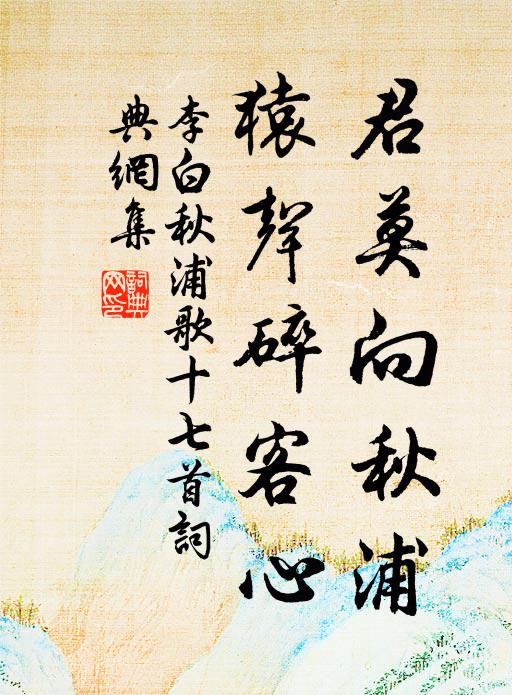 君莫向秋浦
猿聲碎客心
李白秋浦歌十七首詞
典網集
詞典网印